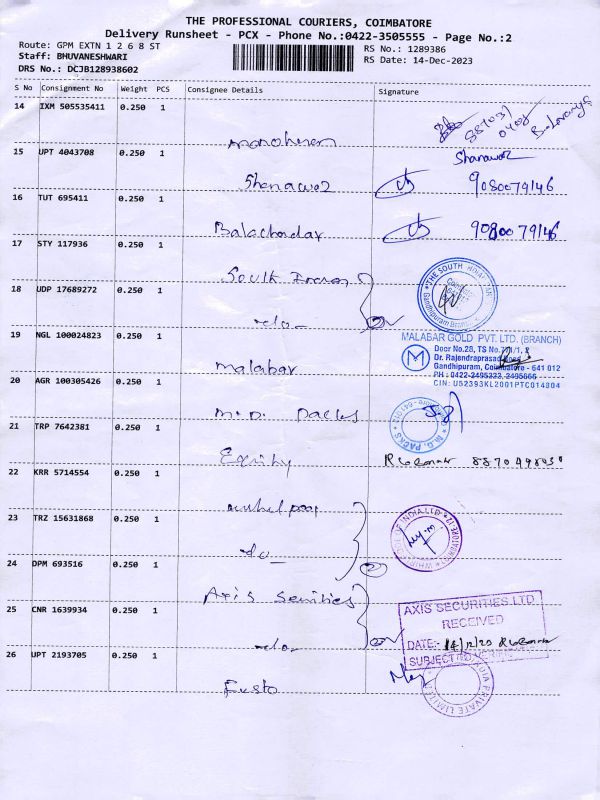 THE PROFESSIONAL COURIERS, COIMBATORE
Delivery Runsheet - PCX - Phone No.:0422-3505555 - Page No.:2
Route: GPM EXTN 1 2 6 8 ST
RS No.: 1289386
Staff: BHUVANESHWARI
RS Date: 14-Dec-2023
DRS No.: DCJB128938602
S No Consignment No Weight PCS Consignee Details Signature
14 IXM 505535411 0.250 1
Manoharan
15 UPT 4043708 0.250 1
Shanawaz
Shanawaz 9080079146
16 TUT 695411 0.250 1
Balachandar 9080079146
17 STY 117936 0.250 1
South Indian
18 UDP 17689272 0.250 1
-do-
THE SOUTH INDIAN
Gandhipuram Branch
19 NGL 100024823 0.250 1
Malabar
MALABAR GOLD PVT. LTD. (BRANCH)
Door No.28, TS No.
Dr. Rajendraprasad Road
Gandhipuram, Coimbatore - 641 012
PH : 0422-2495333, 2495666
CIN: U52393KL2001PTC014804
20 AGR 100305426 0.250 1
M.D. Packs
M.D. PACKS
21 TRP 7642381 0.250 1
Equity
22 KRR 5714554 0.250 1
23 TRZ 15631868 0.250 1
-do-
INDIA LTD
24 DPM 693516 0.250 1
Axis Securities
25 CNR 1639934 0.250 1
-do-
AXIS SECURITIES LTD.
RECEIVED
DATE:- 14/12/20
SUBJECT TO VERIFI
26 UPT 2193705 0.250 1
PRIVATE LIMITED